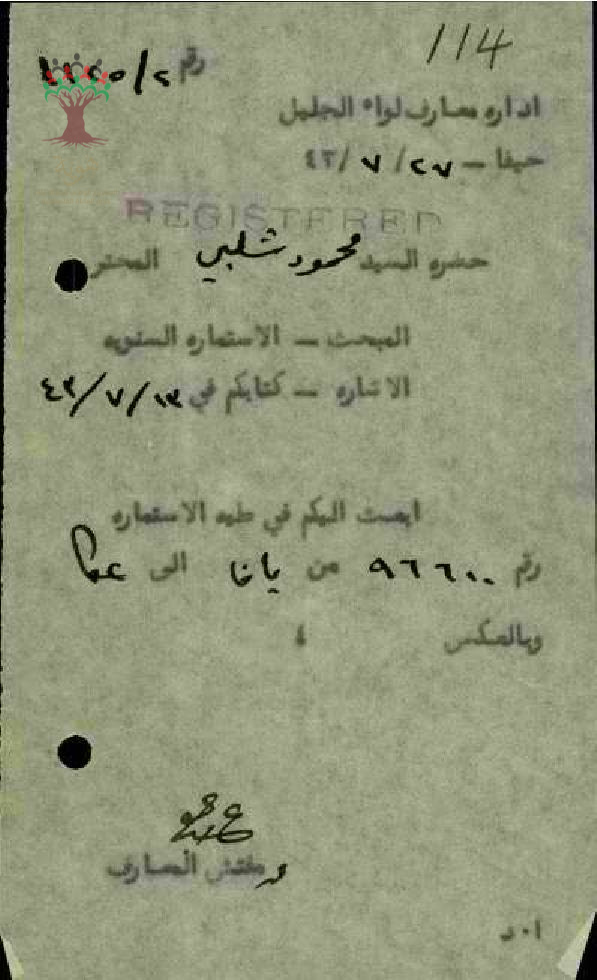 114
رقم
اداره معارف لواء الجليل
حيفا — ٢٧/ ٧ /٤٣
REGISTERED
حضره السيد محمود شلبي المحتر
المبحث — الاستماره السنويه
الاشاره — كتابكم في ١٣/ ٧/ ٤٣
ابعث اليكم في طيه الاستماره
رقم ٩٦٦٠٠ من يافا الى عكا
وبالعكس
مفتش المعارف